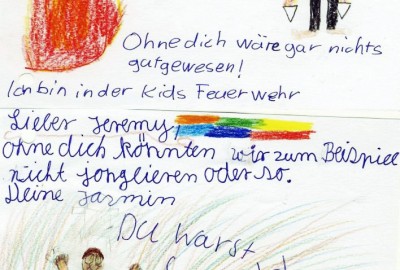 Ohne dich wäre gar nichts
gutgewesen!
Ich bin in der Kids Feuerwehr
Lieber Jeremy,
ohne dich könnten wir zum Beispiel
nicht jonglieren oder so.
Deine Jasmin
Du warst